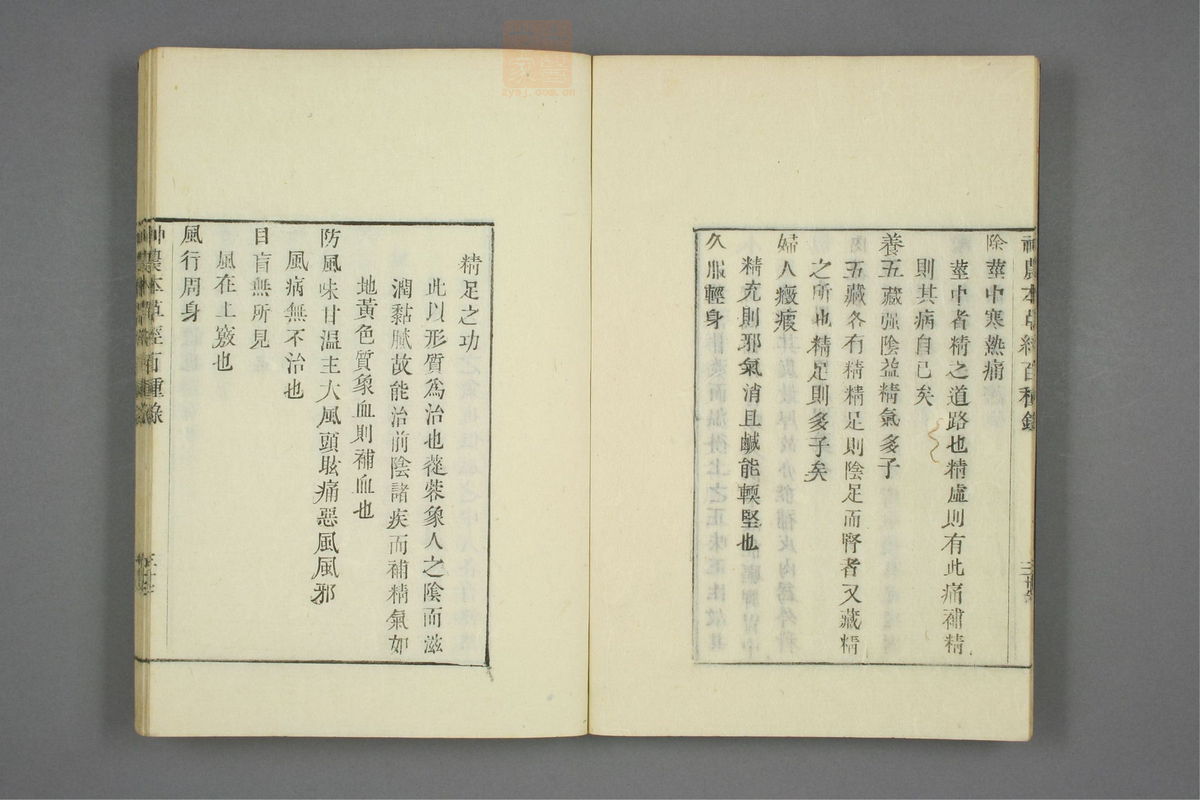 神農本草經百種錄
陰莖中寒熱痛
莖中者精之道路也精虛則有此痛補精
則其病自已矣
養五藏强陰益精氣多子
五藏各有精精足則陰足而腎者又藏精
之所也精足則多子矣
婦人癥瘕
精充則邪氣消且鹹能輭堅也
久服輕身
精足之功
此以形質爲治也蓯蓉象人之陰而滋
潤黏膩故能治前陰諸疾而補精氣如
地黃色質象血則補血也
防風味甘温主大風頭眩痛惡風風邪
風病無不治也
目盲無所見
風在上竅也
風行周身
神農本草經百種錄